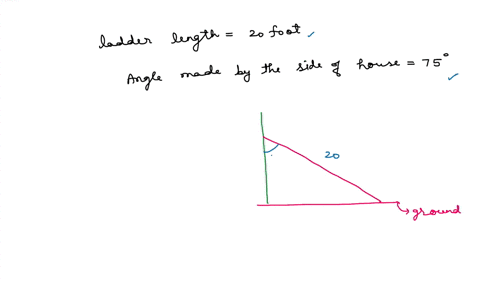 ladder length = 20 foot ✓
Angle made by the side of house = 75° ✓
20
ground